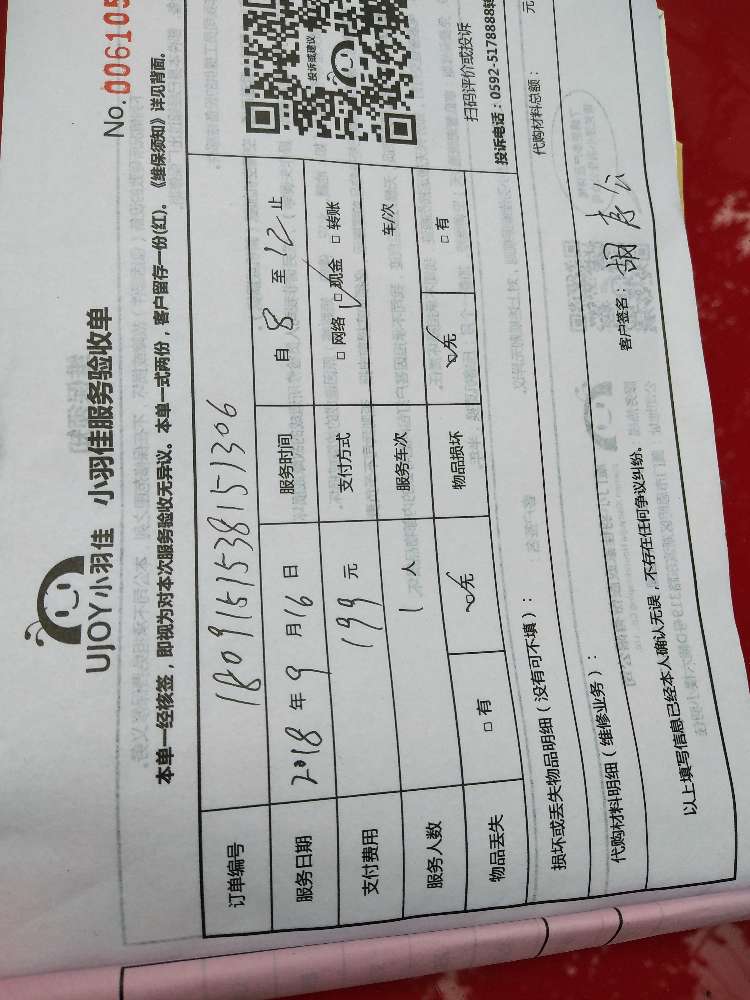 No. 006105
UJOY小羽佳 小羽佳服务验收单
本单一经核签，即视为对本次服务验收无异议。本单一式两份，客户留存一份(红)。《维保须知》详见背面。
订单编号 180915153815151306
服务日期 2018 年 9 月 16 日 服务时间 自 8 至 12 止
支付费用 199 元 支付方式 □ 网络 □ 现金 □ 转账
服务人数 1 人 服务车次 车/次
物品丢失 □ 有 □ 无 物品损坏 □ 无 □ 有
投诉或建议
扫码评价或投诉
投诉电话：0592-5178888转
损坏或丢失物品明细（没有可不填）：
代购材料明细（维修业务）： 代购材料总额： 元
以上填写信息已经本人确认无误，不存在任何争议纠纷。 客户签名：胡